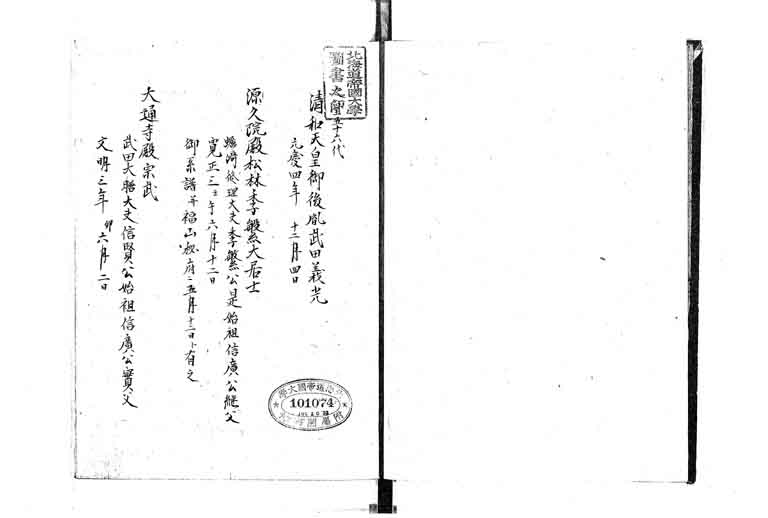 北海道帝國大學
圖書之印
五十六代
清和天皇御後胤武田義光
元慶四年 十二月四日
源久院殿松林季繁大居士
蠣崎修理大夫季繁公是始祖信廣公継父
寛正三壬午六月十二日
御系譜并福山 府ニ五月十二日ト有之
大通寺殿宗武
武田大膳大夫信賢公始祖信廣公實父
文明三年 卯六月二日
北海道帝國大學
101074
附屬圖書